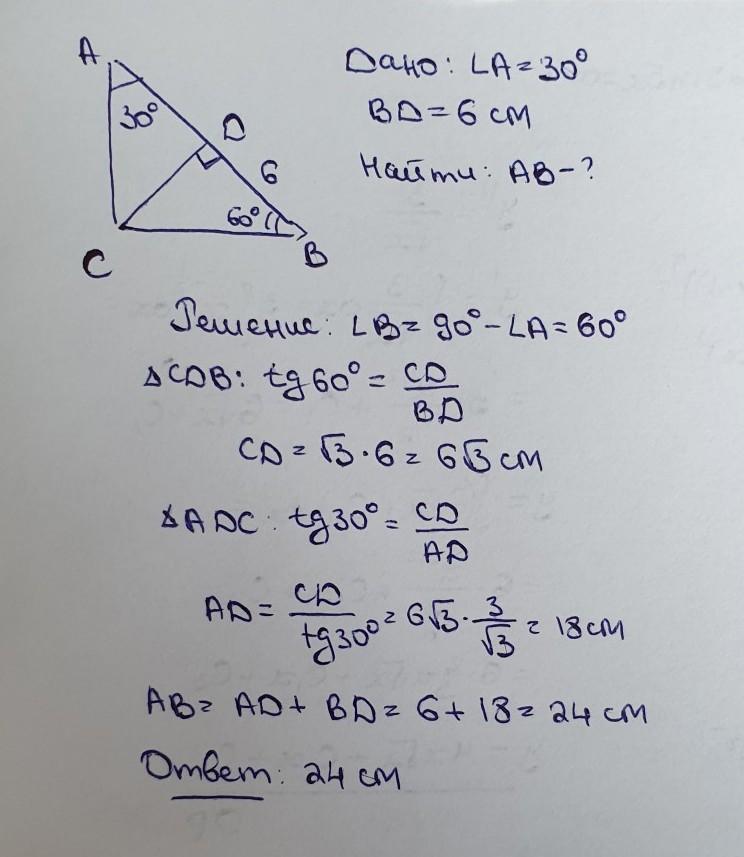 A
30°
D
6
60°
C
B
Дано: ∠A = 30°
BD = 6 см
Найти: AB - ?
Решение: ∠B = 90° - ∠A = 60°
ΔCDB: tg 60° = CD/BD
CD = √3 · 6 = 6√3 см
ΔADC: tg 30° = CD/AD
AD = CD/tg 30° = 6√3 · 3/√3 = 18 см
AB = AD + BD = 6 + 18 = 24 см
Ответ: 24 см